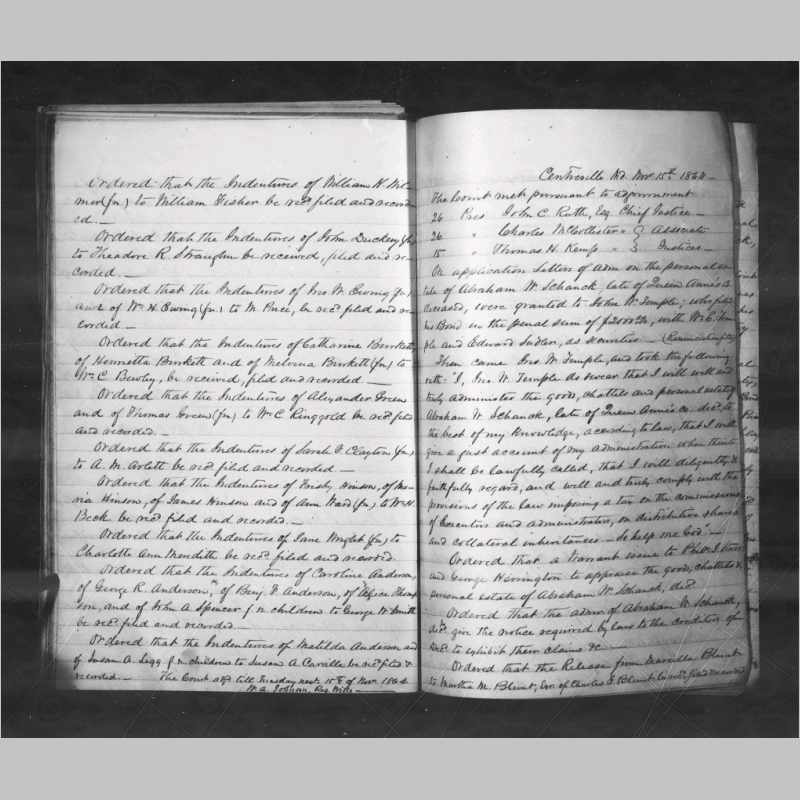 Ordered that the Indentures of William H. Wil-
mer (fn) to William Fisher be recd filed and record-
ed. —
Ordered that the Indentures of John Duckery (fn)
to Theodore R. Straughn be received, filed and re-
corded —
Ordered that the Indentures of Jno W. Ewing (fn)
and of Wm H. Ewing (fn) to M. Price, be recd filed and re-
corded —
Ordered that the Indentures of Catharine Burkett
of Henrietta Burkett and of Melvina Burkett (fn) to
Wm C. Bewley, be received, filed and recorded —
Ordered that the Indentures of Alexander Green
and of Thomas Green (fn) to Wm C Ringgold be recd filed
and recorded. —
Ordered that the Indentures of Sarah F. Clayton (fn)
to A. M. Arlett be recd filed and recorded —
Ordered that the Indentures of Hinson, of Ma-
ria Hinson, of James Hinson and of Ann Ward (fn) to Wm H.
Beck be recd filed and recorded. —
Ordered that the Indentures of Jane Wright (fn) to
Charlotte Ann Meredith be recd filed and recorded
Ordered that the Indentures of Caroline Anderson,
of George R. Anderson, of Benj. F. Anderson, of Thomp
son, and of John A Spencer f n children to George W. Smith
be recd filed and recorded.
Ordered that the Indentures of Matilda Anderson and
of Susan A. f n children to Susan A Carville be recd filed &
recorded. — The Court adjd till Tuesday next 15th of Novr 1864
W. A. Reg Wills —
Centreville Md. Nov. 15th 1864 —
The Court met pursuant to adjournment
26 Pres John C. Ruth, Esq. Chief Justice —
26 " Charles McCollister " } Associate
15 " Thomas H. Kemp " } Justices —
On application Letters of Adm on the personal es-
tate of Abraham W. Schanck late of Queen Anne's Co
deceased, were granted to John W. Temple; who filed
his Bond in the penal sum of $2000.00, with W. E. Tem
ple and Edward as securities —
Then came Jno. W. Temple, and took the following
oath: "I, Jno. W. Temple do swear that I will well and
truly administer the goods, chattels and personal estate of
Abraham W. Schanck, late of Queen Anne's co. decd. to
the best of my knowledge, according to law, that I will
give a just account of my administration when thereto
I shall be lawfully called, that I will diligently &
faithfully regard, and well and truly comply with the
provisions of the law imposing a tax on the commissions
of Executors and administrators, on distributive shares
and collateral inheritances — So help me God." —
Ordered that a Warrant issue to
and George Harrington to appraise the goods, chattels &
personal estate of Abraham W. Schanck, decd
Ordered that the admr of Abraham W. Schanck,
decd give the notice required by law to the creditors of
decd to exhibit their claims &c —
Ordered that the Release from Blunt
to Martha M. Blunt, Exr of Charles Blunt be recd filed & recorded